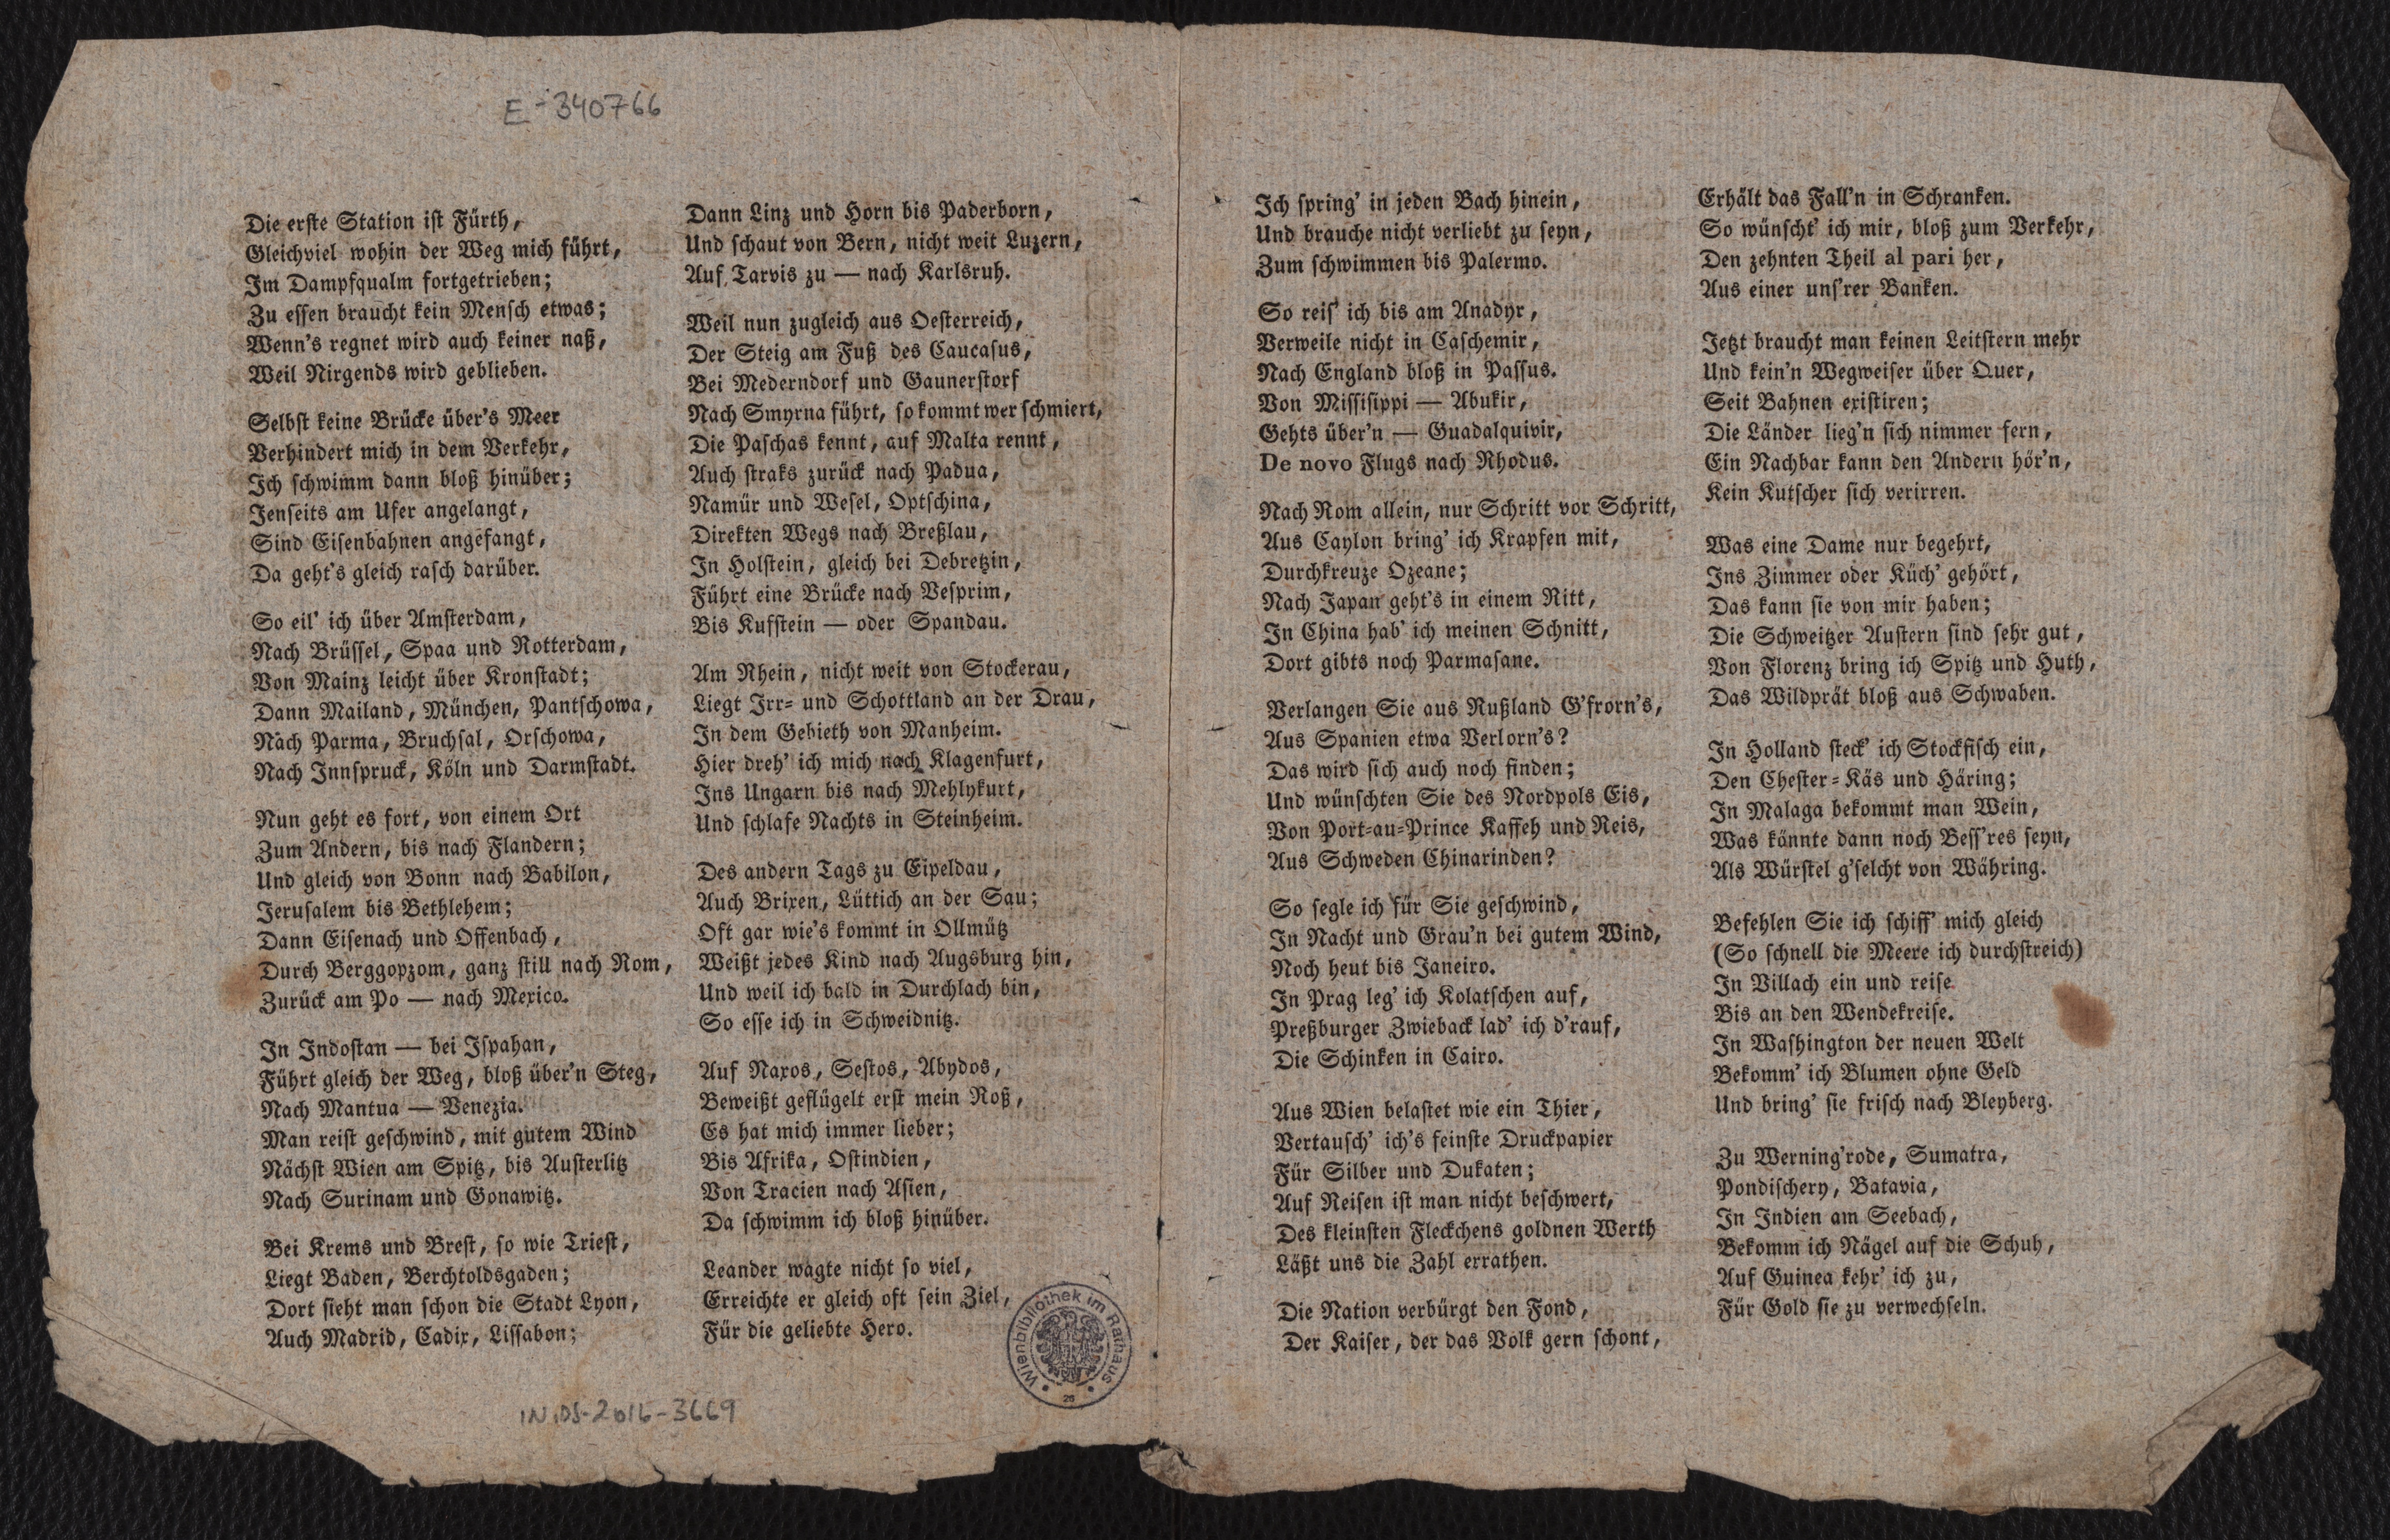 E-340766
Die erste Station ist Fürth,
Gleichviel wohin der Weg mich führt,
Im Dampfqualm fortgetrieben;
Zu essen braucht kein Mensch etwas;
Wenn's regnet wird auch keiner naß,
Weil Nirgends wird geblieben.
Selbst keine Brücke über's Meer
Verhindert mich in dem Verkehr,
Ich schwimm dann bloß hinüber;
Jenseits am Ufer angelangt,
Sind Eisenbahnen angefangt,
Da geht's gleich rasch darüber.
So eil' ich über Amsterdam,
Nach Brüssel, Spaa und Rotterdam,
Von Mainz leicht über Kronstadt;
Dann Mailand, München, Pantschowa,
Nach Parma, Bruchsal, Orschowa,
Nach Innspruck, Köln und Darmstadt.
Nun geht es fort, von einem Ort
Zum Andern, bis nach Flandern;
Und gleich von Bonn nach Babilon,
Jerusalem bis Bethlehem;
Dann Eisenach und Offenbach,
Durch Berggopzom, ganz still nach Rom,
Zurück am Po — nach Mexico.
In Indostan — bei Ispahan,
Führt gleich der Weg, bloß über'n Steg,
Nach Mantua — Venezia.
Man reist geschwind, mit gutem Wind
Nächst Wien am Spitz, bis Austerlitz
Nach Surinam und Gonawitz.
Bei Krems und Brest, so wie Triest,
Liegt Baden, Berchtoldsgaden;
Dort sieht man schon die Stadt Lyon,
Auch Madrid, Cadix, Lissabon;
Dann Linz und Horn bis Paderborn,
Und schaut von Bern, nicht weit Luzern,
Auf Tarvis zu — nach Karlsruh.
Weil nun zugleich aus Oesterreich,
Der Steig am Fuß des Caucasus,
Bei Mederndorf und Gaunerstorf
Nach Smyrna führt, so kommt wer schmiert,
Die Paschas kennt, auf Malta rennt,
Auch straks zurück nach Padua,
Namür und Wesel, Optschina,
Direkten Wegs nach Breßlau,
In Holstein, gleich bei Debretzin,
Führt eine Brücke nach Vesprim,
Bis Kufstein — oder Spandau.
Am Rhein, nicht weit von Stockerau,
Liegt Irr- und Schottland an der Drau,
In dem Gebieth von Manheim.
Hier dreh' ich mich nach Klagenfurt,
Ins Ungarn bis nach Mehlykurt,
Und schlafe Nachts in Steinheim.
Des andern Tags zu Eipeldau,
Auch Brixen, Lüttich an der Sau;
Oft gar wie's kommt in Ollmütz
Weißt jedes Kind nach Augsburg hin,
Und weil ich bald in Durchlach bin,
So esse ich in Schweidnitz.
Auf Naxos, Sestos, Abydos,
Beweißt geflügelt erst mein Roß,
Es hat mich immer lieber;
Bis Afrika, Ostindien,
Von Tracien nach Asien,
Da schwimm ich bloß hinüber.
Leander wagte nicht so viel,
Erreichte er gleich oft sein Ziel,
Für die geliebte Hero.
Wienbibliothek im Rathaus
IN.DS-2016-3669
Ich spring' in jeden Bach hinein,
Und brauche nicht verliebt zu seyn,
Zum schwimmen bis Palermo.
So reis' ich bis am Anadyr,
Verweile nicht in Caschemir,
Nach England bloß in Passus.
Von Missisippi — Abukir,
Gehts über'n — Guadalquivir,
De novo Flugs nach Rhodus.
Nach Rom allein, nur Schritt vor Schritt,
Aus Caylon bring' ich Krapfen mit,
Durchkreuze Ozeane;
Nach Japan geht's in einem Ritt,
In China hab' ich meinen Schnitt,
Dort gibts noch Parmasane.
Verlangen Sie aus Rußland G'frorn's,
Aus Spanien etwa Verlorn's?
Das wird sich auch noch finden;
Und wünschten Sie des Nordpols Eis,
Von Port-au-Prince Kaffeh und Reis,
Aus Schweden Chinarinden?
So segle ich für Sie geschwind,
In Nacht und Grau'n bei gutem Wind,
Noch heut bis Janeiro.
In Prag leg' ich Kolatschen auf,
Preßburger Zwieback lad' ich d'rauf,
Die Schinken in Cairo.
Aus Wien belastet wie ein Thier,
Vertausch' ich's feinste Druckpapier
Für Silber und Dukaten;
Auf Reisen ist man nicht beschwert,
Des kleinsten Fleckchens goldnen Werth
Läßt uns die Zahl errathen.
Die Nation verbürgt den Fond,
Der Kaiser, der das Volk gern schont,
Erhält das Fall'n in Schranken.
So wünscht' ich mir, bloß zum Verkehr,
Den zehnten Theil al pari her,
Aus einer uns'rer Banken.
Jetzt braucht man keinen Leitstern mehr
Und kein'n Wegweiser über Quer,
Seit Bahnen existiren;
Die Länder lieg'n sich nimmer fern,
Ein Nachbar kann den Andern hör'n,
Kein Kutscher sich verirren.
Was eine Dame nur begehrt,
Ins Zimmer oder Küch' gehört,
Das kann sie von mir haben;
Die Schweitzer Austern sind sehr gut,
Von Florenz bring ich Spitz und Huth,
Das Wildprät bloß aus Schwaben.
In Holland steck' ich Stockfisch ein,
Den Chester-Käs und Häring;
In Malaga bekommt man Wein,
Was könnte dann noch Bess'res seyn,
Als Würstel g'selcht von Währing.
Befehlen Sie ich schiff' mich gleich
(So schnell die Meere ich durchstreich)
In Villach ein und reise
Bis an den Wendekreise.
In Washington der neuen Welt
Bekomm' ich Blumen ohne Geld
Und bring' sie frisch nach Bleyberg.
Zu Werning'rode, Sumatra,
Pondischery, Batavia,
In Indien am Seebach,
Bekomm ich Nägel auf die Schuh,
Auf Guinea kehr' ich zu,
Für Gold sie zu verwechseln.